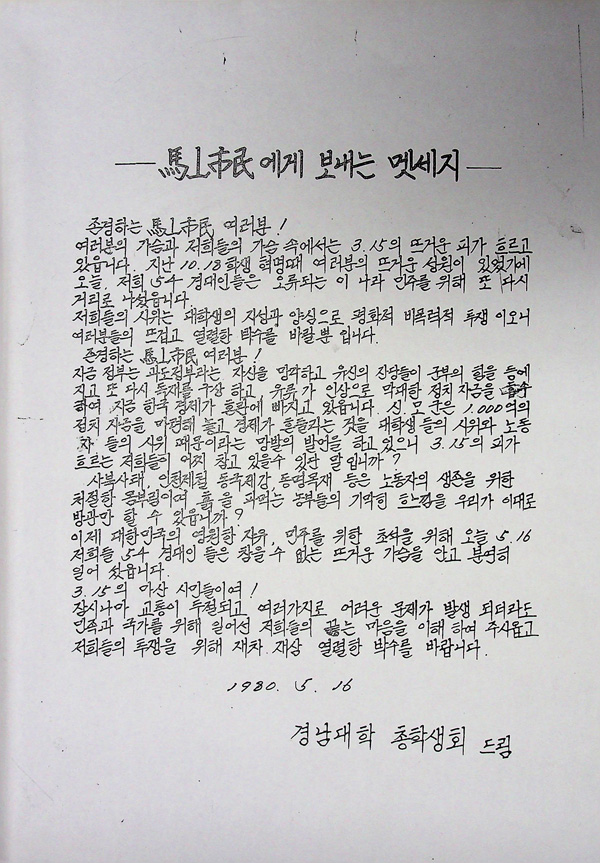 馬山市民에게 보내는 멧세지
존경하는 馬山市民 여러분!
여러분의 가슴과 저희들의 가슴 속에서는 3.15의 뜨거운 피가 흐르고
있읍니다. 지난 10.18 학생 혁명때 여러분의 뜨거운 성원이 있었기에
오늘, 저희 5만 경대인들은 오류되는 이 나라 민주를 위해 또 다시
거리로 나섰읍니다.
저희들의 시위는 대학생의 지성과 양심으로 평화적 비폭력적 투쟁 이오니
여러분들의 뜨겁고 열렬한 박수를 바랄 뿐 입니다.
존경하는 馬山市民 여러분!
지금 정부는 과도정부라는 자신을 망각하고 유신의 잔당들이 군부의 힘을 등에
지고 또 다시 독재를 구상 하고 유류가 인상으로 막대한 정치 자금을
하여 지금 한국 경제가 혼란에 빠지고 있읍니다. 신, 모 군은 1,000억의
정치 자금을 마련해 놓고 경제가 흔들리는 것을 대학생 들의 시위와 노동
자 들의 시위 때문이라는 망발의 발언을 하고 있으니 3.15의 피가
흐르는 저희들이 어찌 참고 있을수 있단 말입니까?
사북사태, 인천제철 동국제강, 동명목재 등은 노동자의 생존을 위한
처절한 몸부림이며 흙을 파먹는 농부들의 기막힌 흐느낌을 우리가 이대로
방관만 할 수 있읍니까?
이제 대한민국의 영원한 자유, 민주를 위한 초석을 위해 오늘 5.16
저희들 5천 경대인 들은 참을 수 없는 뜨거운 가슴을 안고 분연히
일어 섰읍니다.
3.15의 마산 시민들이여!
잠시나마 교통이 두절되고 여러가지로 어려운 문제가 발생 되더라도
민족과 국가를 위해 일어선 저희들의 끓는 마음을 이해 하여 주시옵고
저희들의 투쟁을 위해 재차, 재삼 열렬한 박수를 바랍니다.
1980. 5. 16
경남대학 총학생회 드림